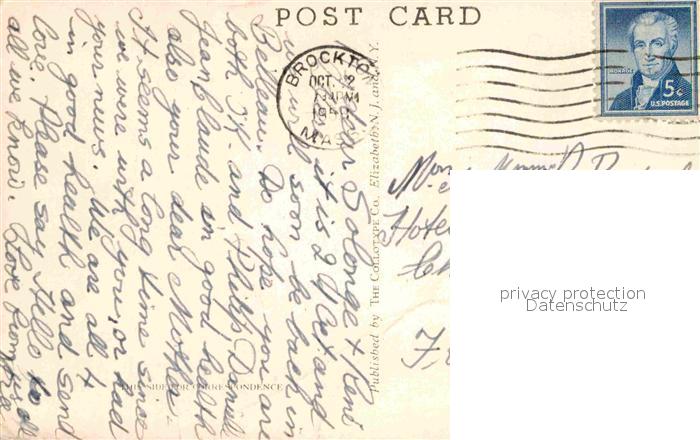 POST CARD
BROCKTON
OCT 2
7 30 PM
MASS
MONROE
5¢
U.S. POSTAGE
Dear Solange + René
it is 2 of Oct and
you will soon be back in
Belleau. Do hope you are
both O.K. and Philip Daniel
Jean Claude in good health
also your dear Mother.
It seems a long time since
we were with you, or had
your news. We are all 4
in good health and send
love. Please say Hello to
all we know. Love from us all
THIS SIDE FOR CORRESPONDENCE
Published by THE COLLOTYPE CO., Elizabeth, N. J. and N. Y.
Hotel
privacy protection
Datenschutz